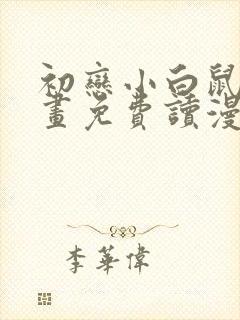 初戀小白鼠
畫免費讀漫
李華偉